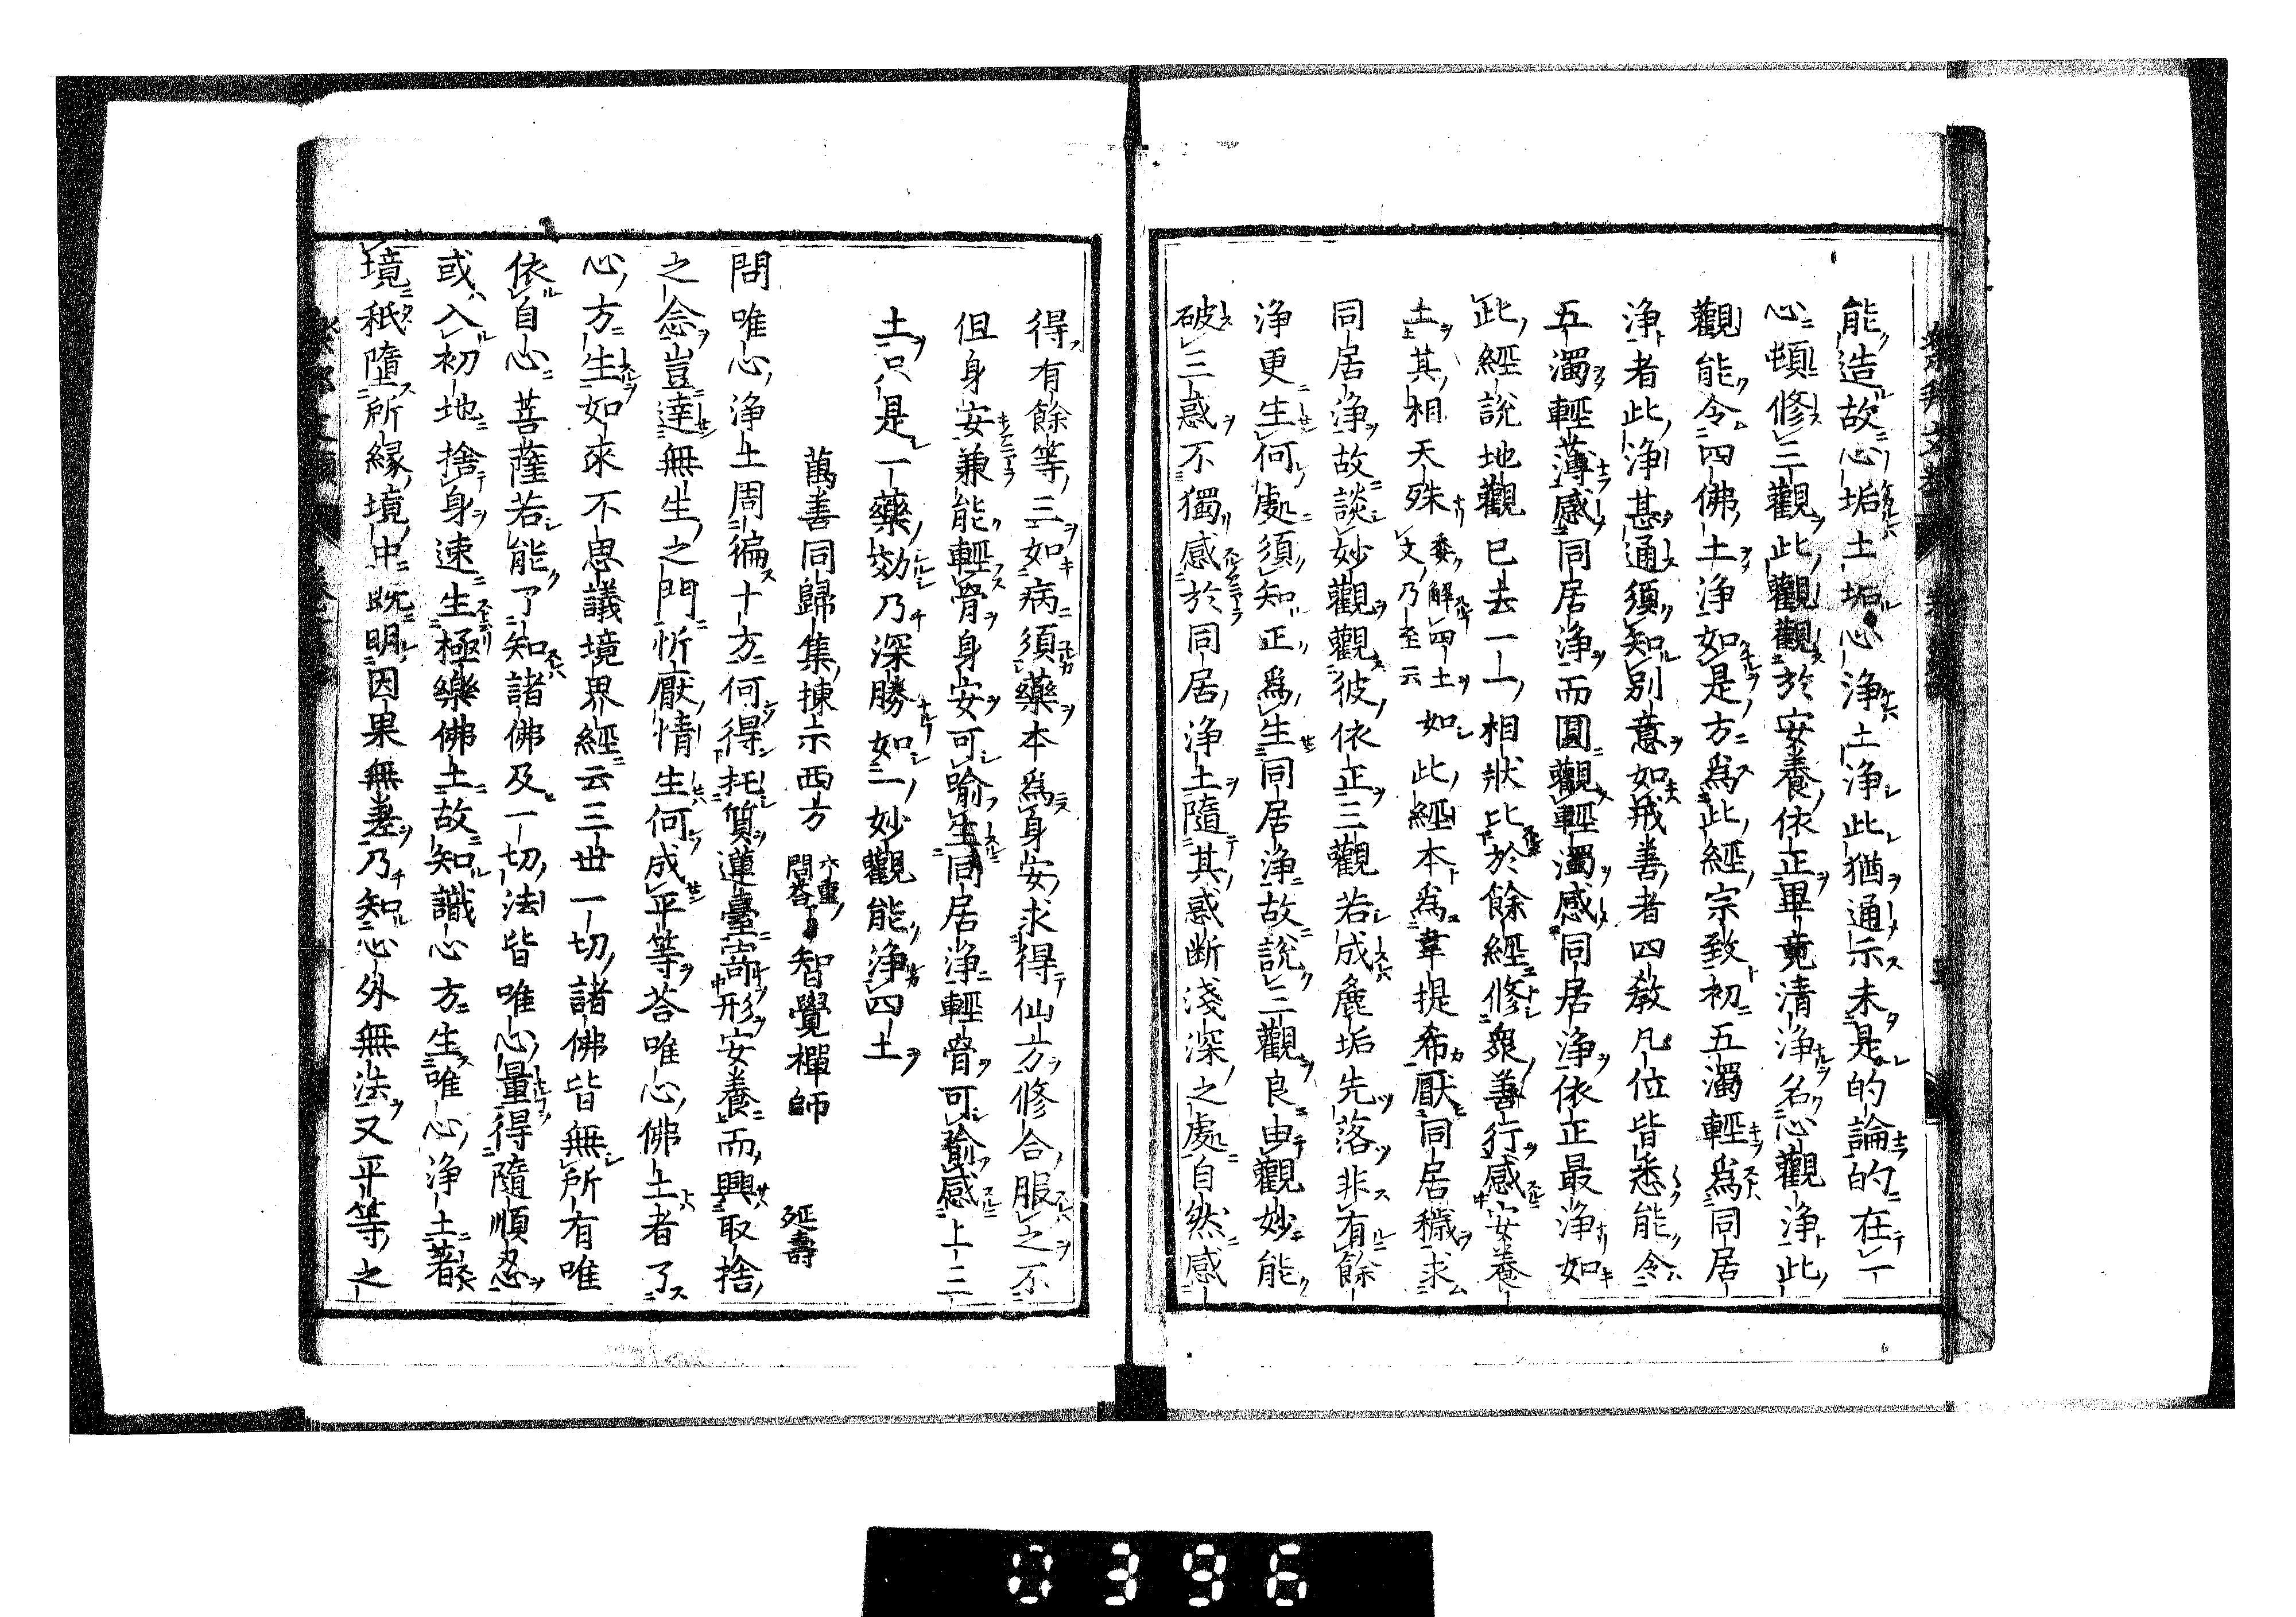 能造故心垢土垢心淨土淨此猶通示未是的論的在一
心頓修三觀此觀觀於安養依正畢竟清淨名心觀淨此
觀能令四佛土淨如是方爲此經宗致初五濁輕爲同居
淨者此淨甚通須知別意如戒善者四教凡位皆悉能令
五濁輕薄感同居淨而圓觀輕濁感同居淨依正最淨如
此經說地觀已去一一相狀比於餘經修衆善行感安養
土其相天殊委解四土文乃至云如此經本爲韋提希厭同居穢求
同居淨故談妙觀觀彼依正三觀若成麁垢先落非有餘
淨更生何處須知正爲生同居淨故說三觀良由觀妙能
破三惑不獨感於同居淨土隨其惑斷淺深之處自然感
得有餘等三如病須藥本爲身安求得仙方修合服之不
但身安兼能輕骨身安可喻生同居淨輕骨可喻感上三
土只是一藥效乃深勝如一妙觀能淨四土
萬善同歸集揀示西方 六重問荅 智覺禪師 延壽
問唯心淨土周徧十方何得托質蓮臺寄形安養而興取捨
之念豈達無生之門忻厭情生何成平等荅唯心佛土者了
心方生如來不思議境界經云三世一切諸佛皆無所有唯
依自心菩薩若能了知諸佛及一切法皆唯心量得隨順忍
或入初地捨身速生極樂佛土故知識心方生唯心淨土著
境秖墮所緣境中旣明因果無差乃知心外無法又平等之
0396